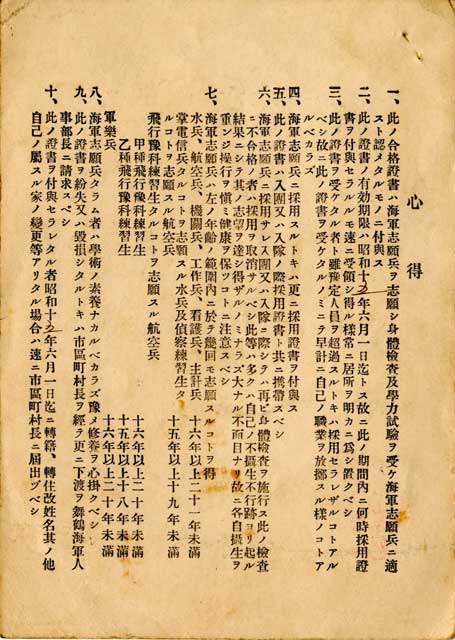 心得
一、此ノ合格證書ハ海軍志願兵ヲ志願シ身體檢査及學力試驗ヲ受ケ海軍志願兵ニ適
スト認メタルモノニ付與ス
二、此ノ證書ノ有効期限ハ昭和十五年六月一日迄トス故ニ此ノ期間内ニ何時採用證
書ヲ付與セラルルモ速ニ受領シ得ル樣常ニ居所ヲ明カニ爲シ置クベシ
三、此ノ證書ヲ受ケタル者ト雖豫定人員ヲ超過スルトキハ採用セラレザルコトアル
ベシ故ニ此ノ證書ヲ受ケタルノミニテ早計ニ自己ノ職業ヲ放擲スル樣ノコトア
ルベカラズ
四、海軍志願兵ニ採用スルトキハ更ニ採用證書ヲ付與ス
五、此ノ證書ハ入團又ハ入隊ノ際採用證書ト共ニ携帶スベシ
六、海軍志願兵ニ採用サレ入團又ハ入隊ニ際シテハ再ビ身體檢査ヲ施行ス此ノ檢査
ニ不合格ノ者ハ採用ヲ取消サルベシ此等ハ多ク自己ノ不攝生不行跡ヨリ起ル
結果ニシテ其ノ志望ヲ達シ得ザルノミナラズ大ナル不面目ナリ故ニ各自攝生ヲ
重ンジ操行ヲ愼ミ健康ヲ保ツコトニ注意スベシ
七、海軍志願兵ハ左ノ年齡ノ範圍内ニ於テ幾回モ志願スルコトヲ得
水兵、航空兵、機關兵、工作兵、看護兵、主計兵 十六年以上二十一年未滿
掌電信兵タルコトヲ志願スル水兵及偵察練習生タ
ルコトヲ志願スル航空兵 十五年以上十九年未滿
飛行豫科練習生タルコトヲ志願スル航空兵
甲種飛行豫科練習生 十六年以上二十年未滿
乙種飛行豫科練習生 十五年以上十八年未滿
軍樂兵 十六年以上二十年未滿
八、海軍志願兵タラム者ハ學術ノ素養ナカルベカラズ豫メ修養ヲ心掛クベシ
九、此ノ證書ヲ紛失又ハ毀損シタルトキハ市區町村長ヲ經テ更ニ下渡ヲ舞鶴海軍人
事部長ニ請求スベシ
十、此ノ證書ヲ付與セラレタル者昭和十五年六月一日迄ニ轉籍、轉住改姓名其ノ他
自己ノ屬スル家ノ變更等アリタル場合ハ速ニ市區町村長ニ届出ヅベシ